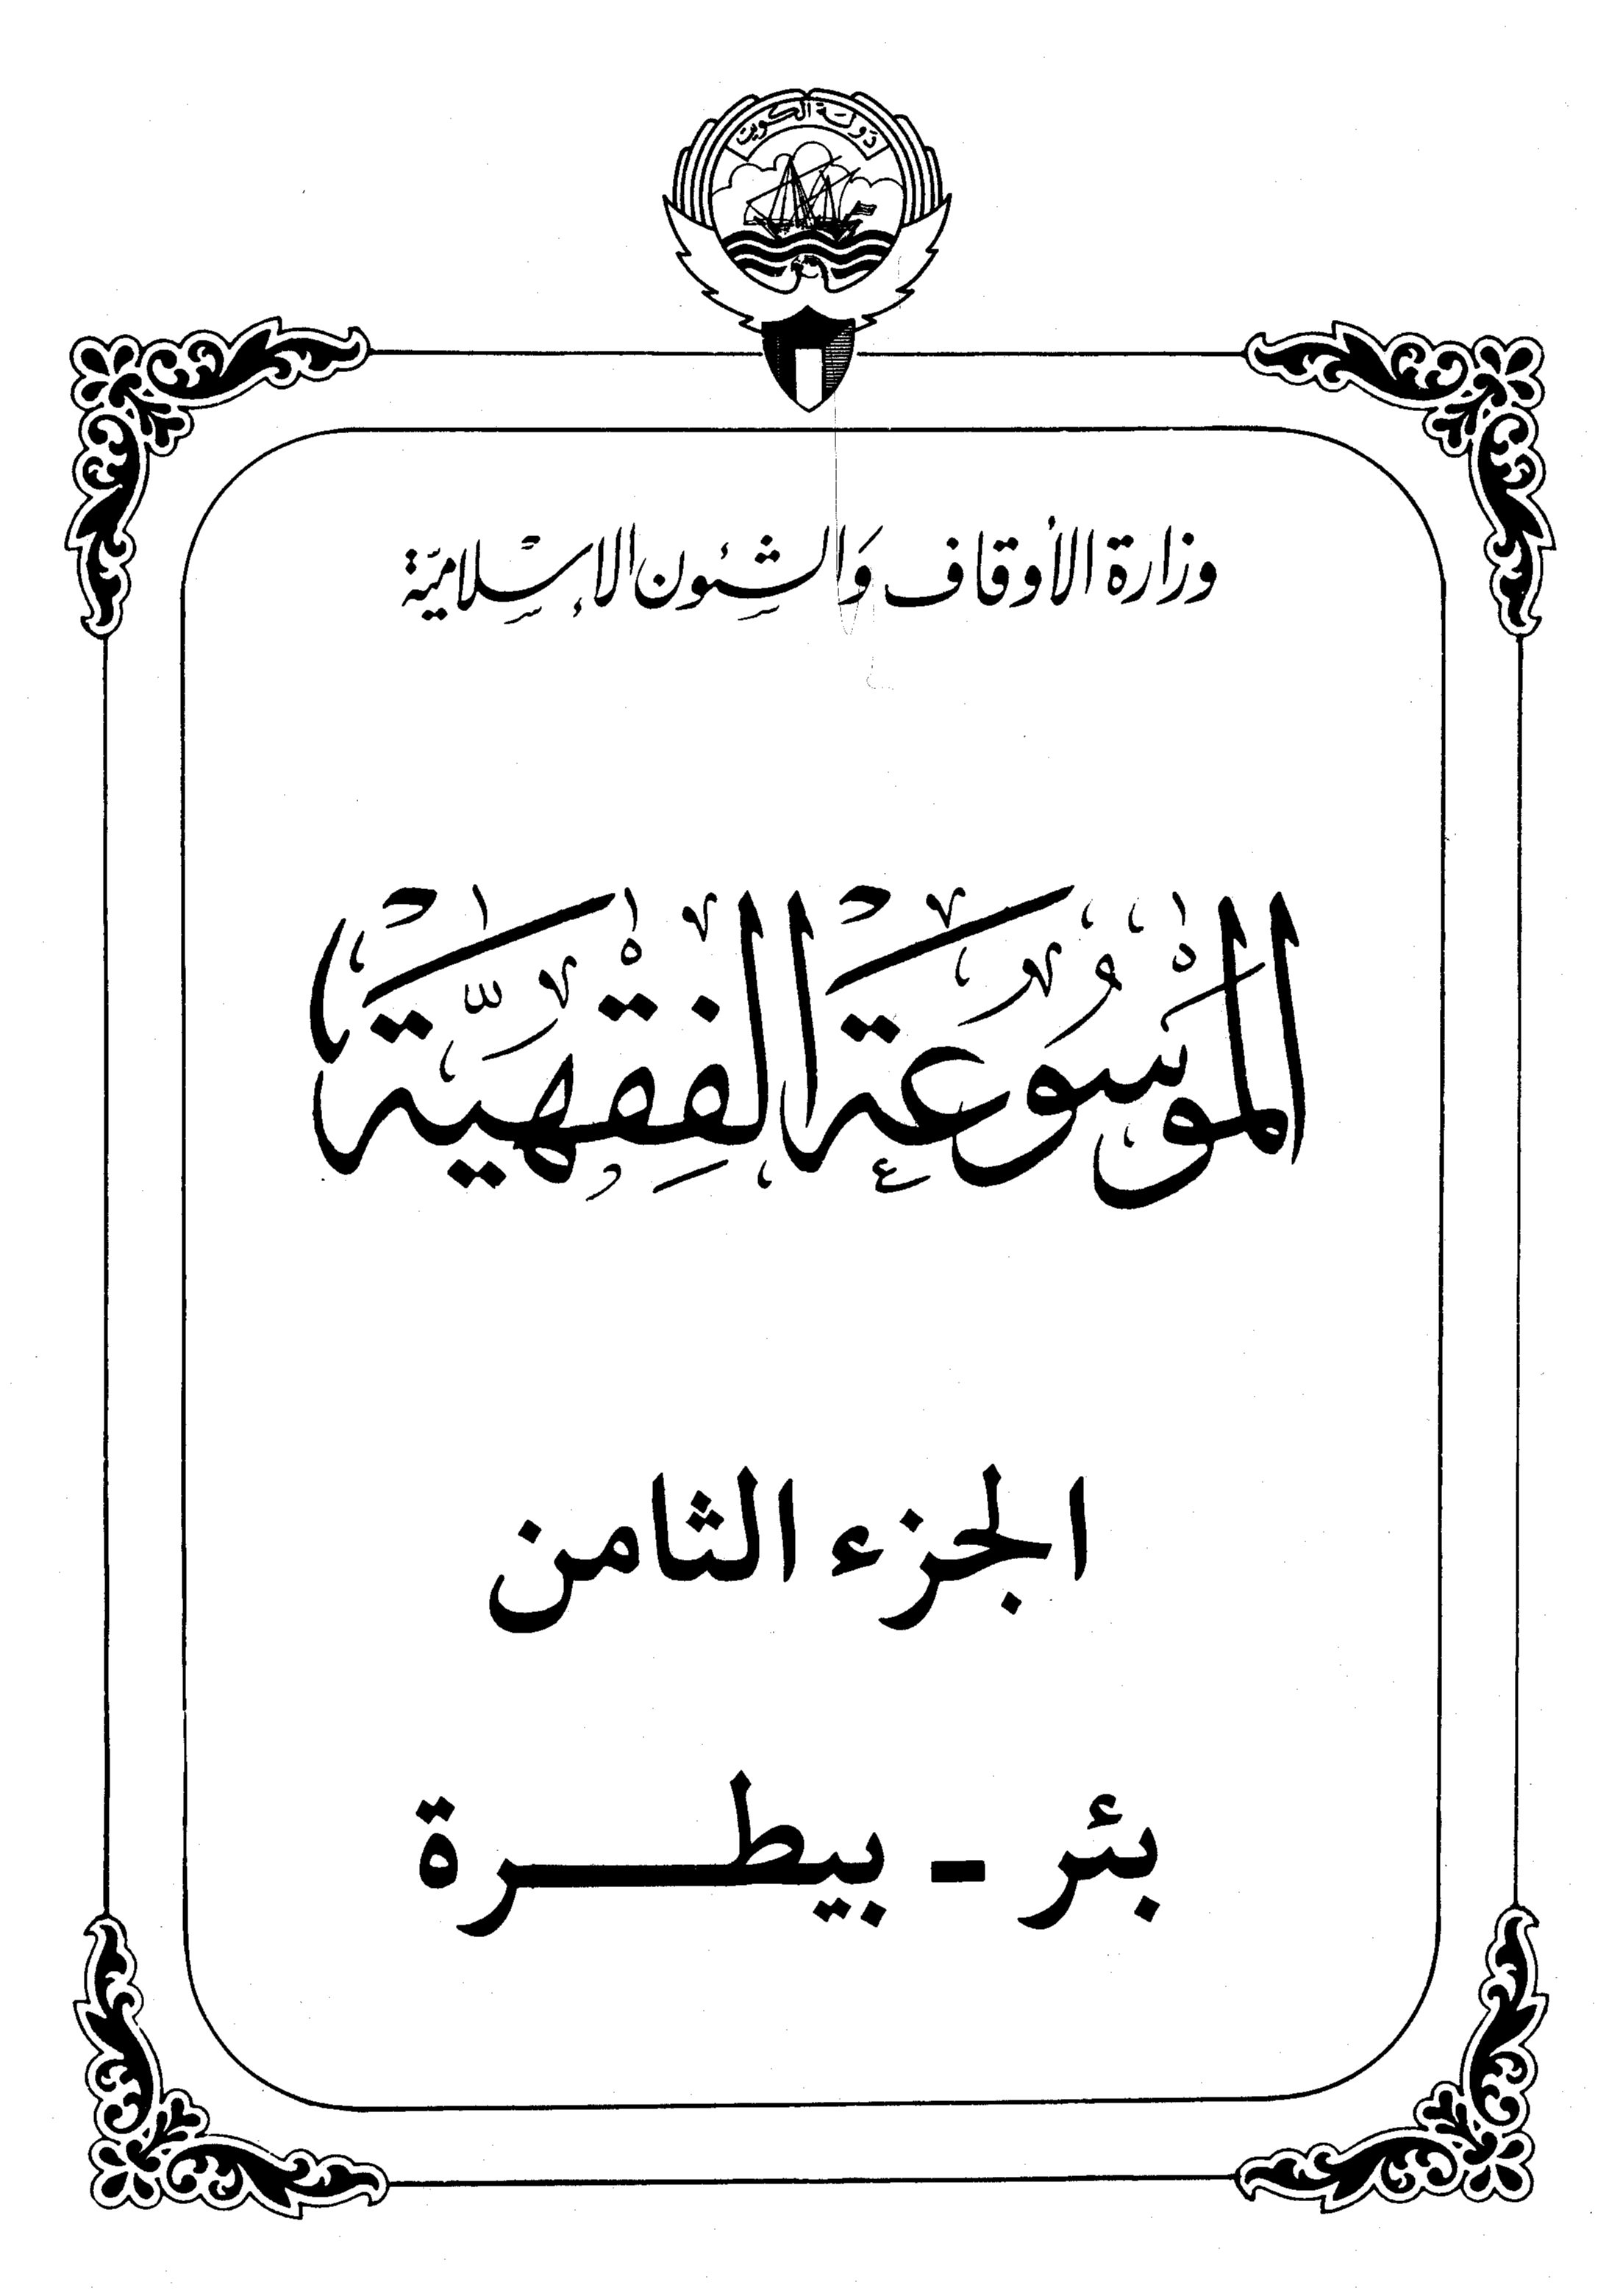 دولة الكويت
وزارة الأوقاف والشئون الإسلامية
الموسوعة الفقهية
الجزء الثامن
بئر - بيطرة